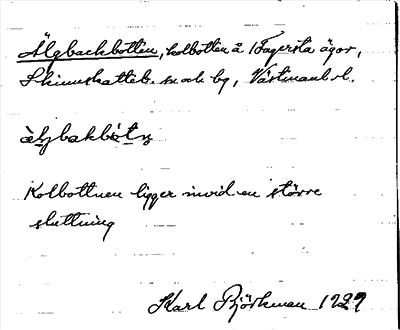 Älgbackbotten, kolbotten å Fagersta ägor,
Skinnskatteb. sn och bg, Västmanl. l.
àljbakbòtn
Kolbottnen ligger invid en större
sluttning
Karl Björkman 1929